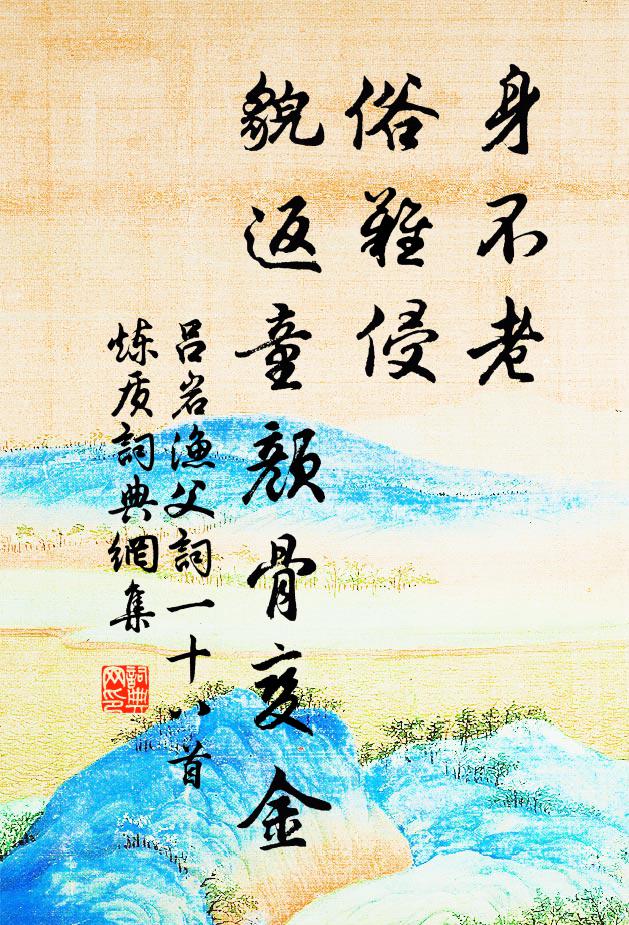 身不老
俗難侵
貌返童顏骨变金
吕岩漁父詞一十八首
炼质詞典網集
詞典
网印